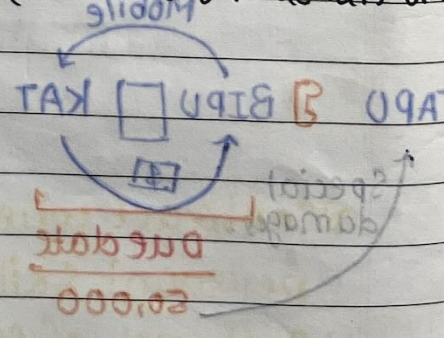 Mobile
TAPU BIPU KAT
Special
damages
Due date
50,000